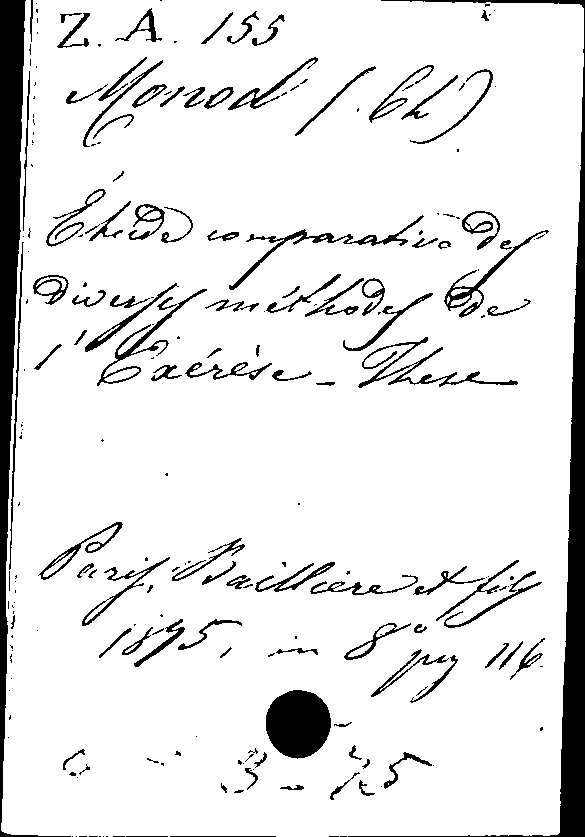 Z. A. 155
Monod (Ch)
Étude comparative des
diverses méthodes de
l'Exérèse - These
Paris, Baillière et fils
1875, in 8° pag 116
3-75